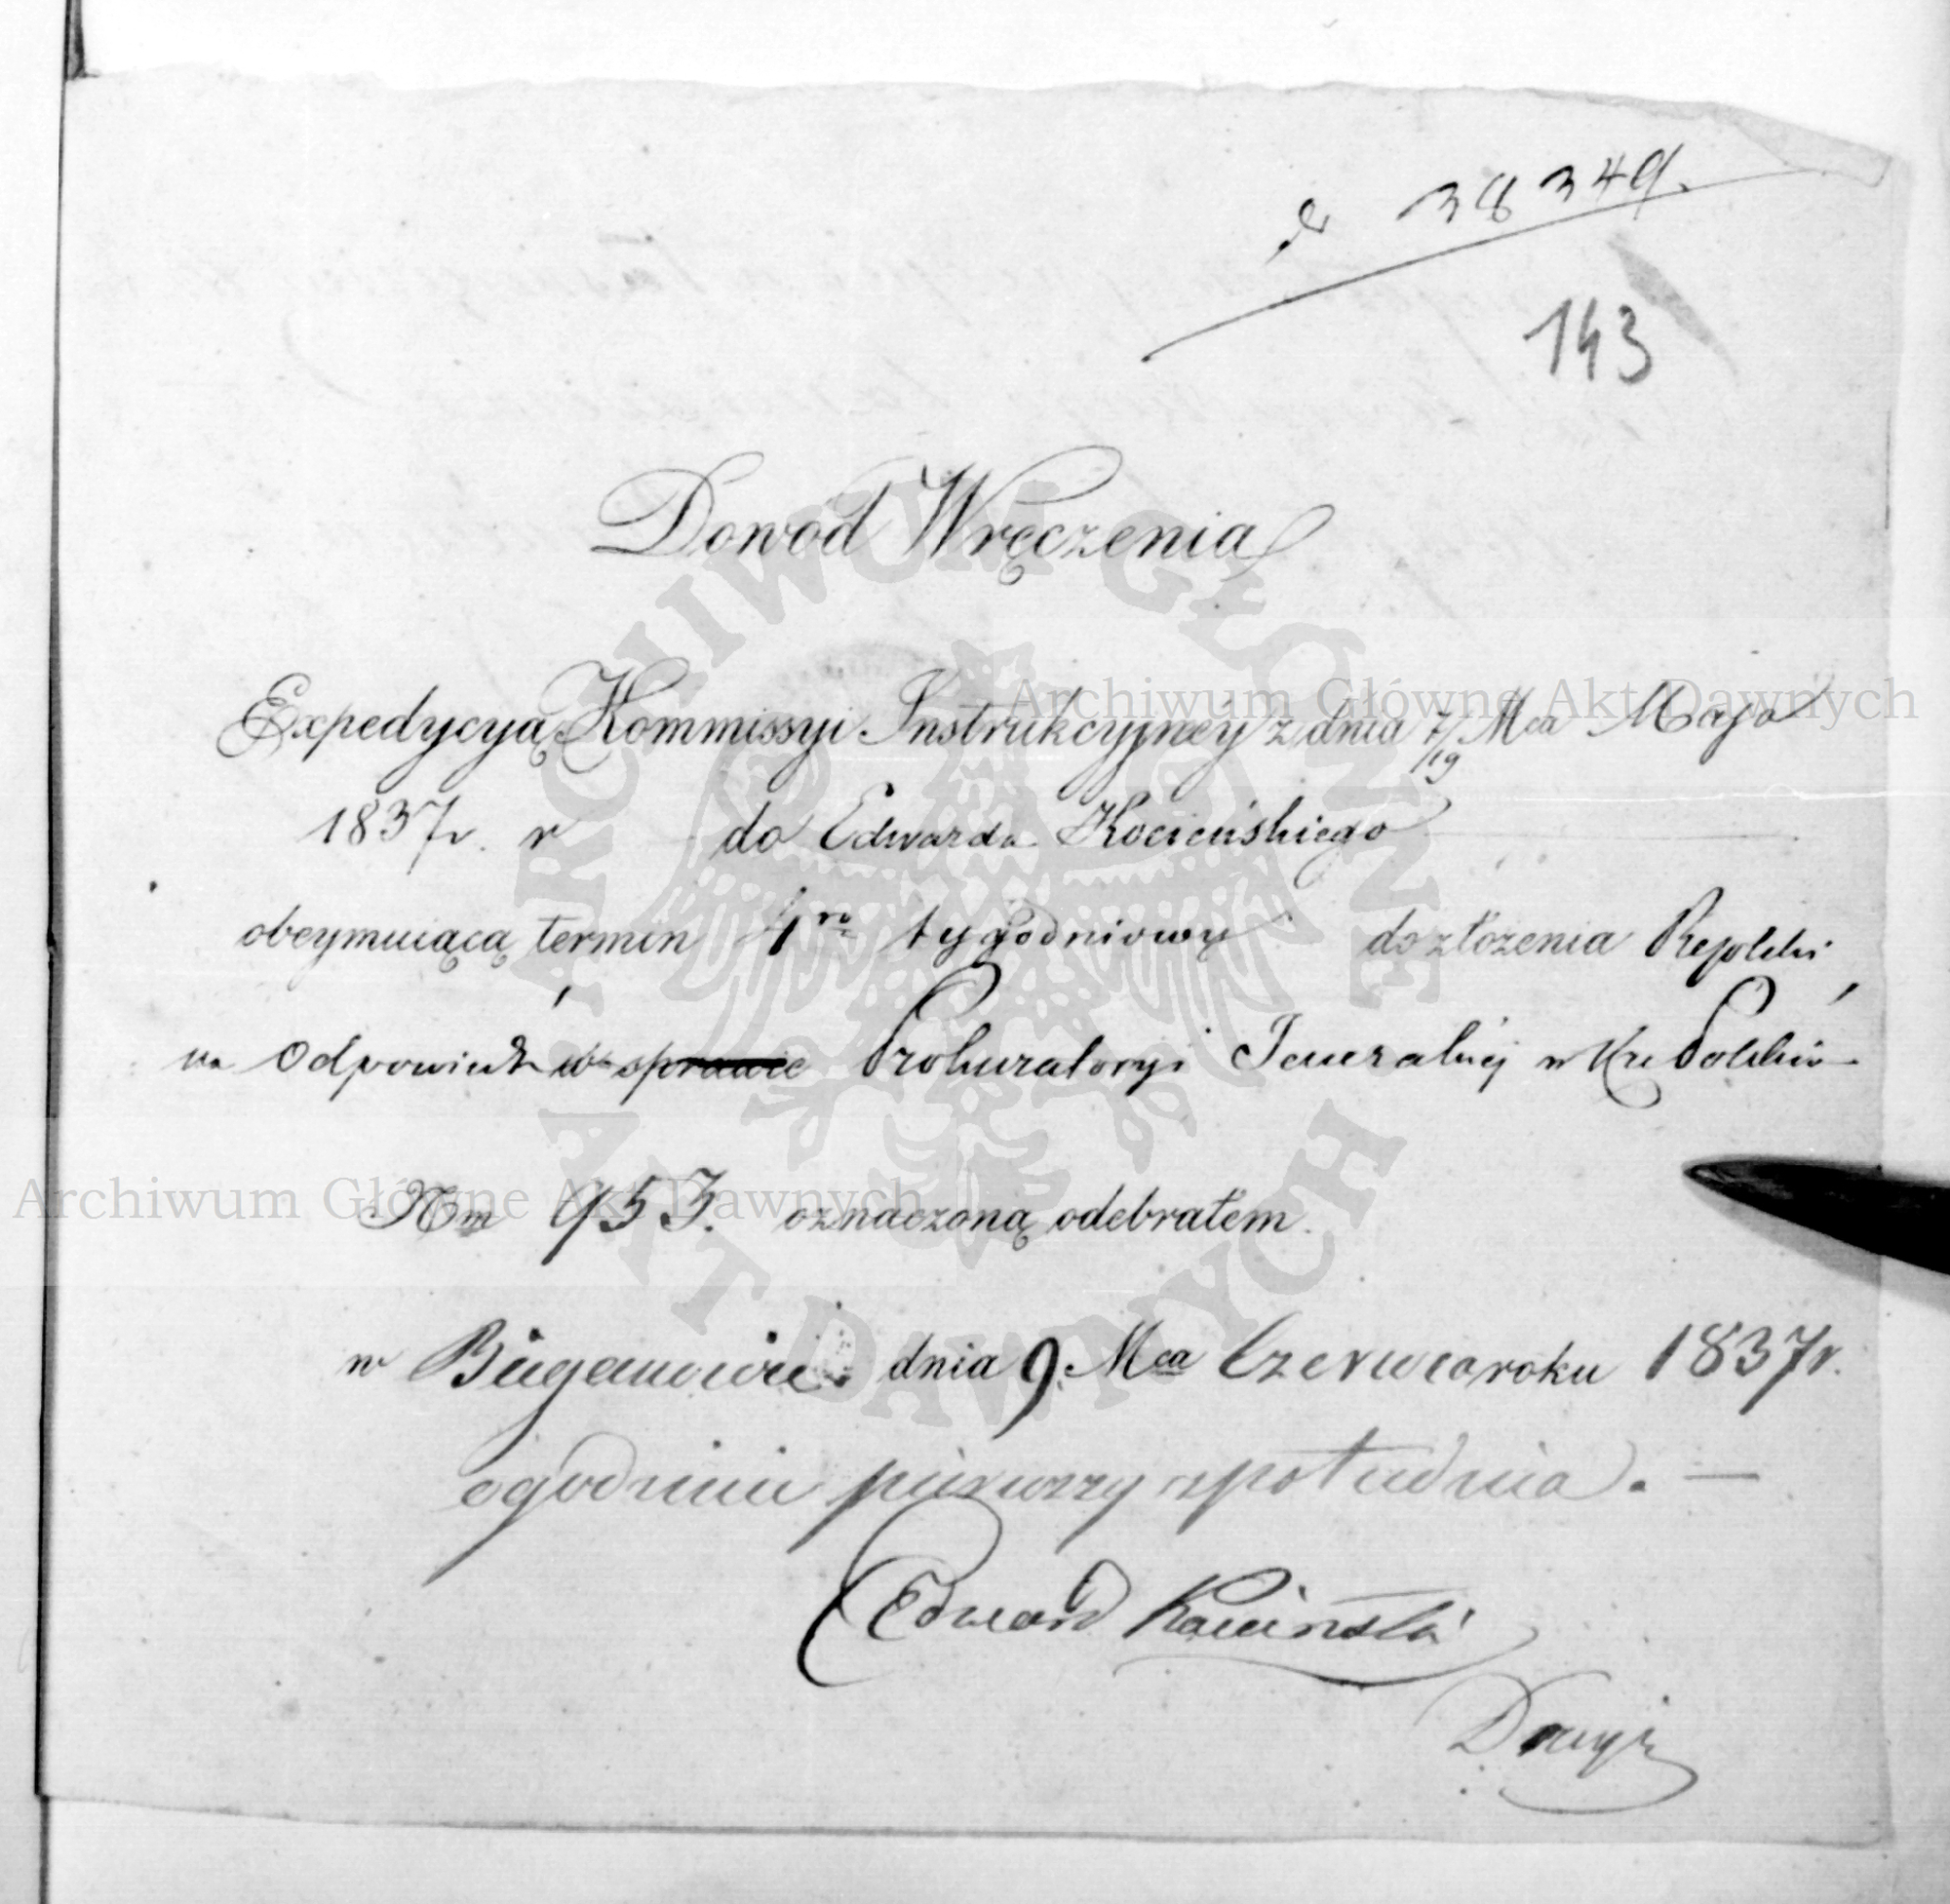 38349.
143
Dowod Wręczenia
Expedycyą Kommissyi Instrukcyjney z dnia 7/19 Mca Maja
1837 r. r do Edwarda Kocieńskiego
obeymuiącą termin 4ro tygodniowy do złożenia Repliki
na Odpowiedź w sprawie Prokuratoryi Jeneralnéj w Kr. Polskié
Nrm 953. oznaczoną odebrałem.
w dnia 9 Mca Czerwca roku 1837 r.
o godzinie pierwszy z południa. —
Edward Kocieński
Archiwum Główne Akt Dawnych
Archiwum Główne Akt Dawnych
ARCHIWUM GŁÓWNE AKT DAWNYCH